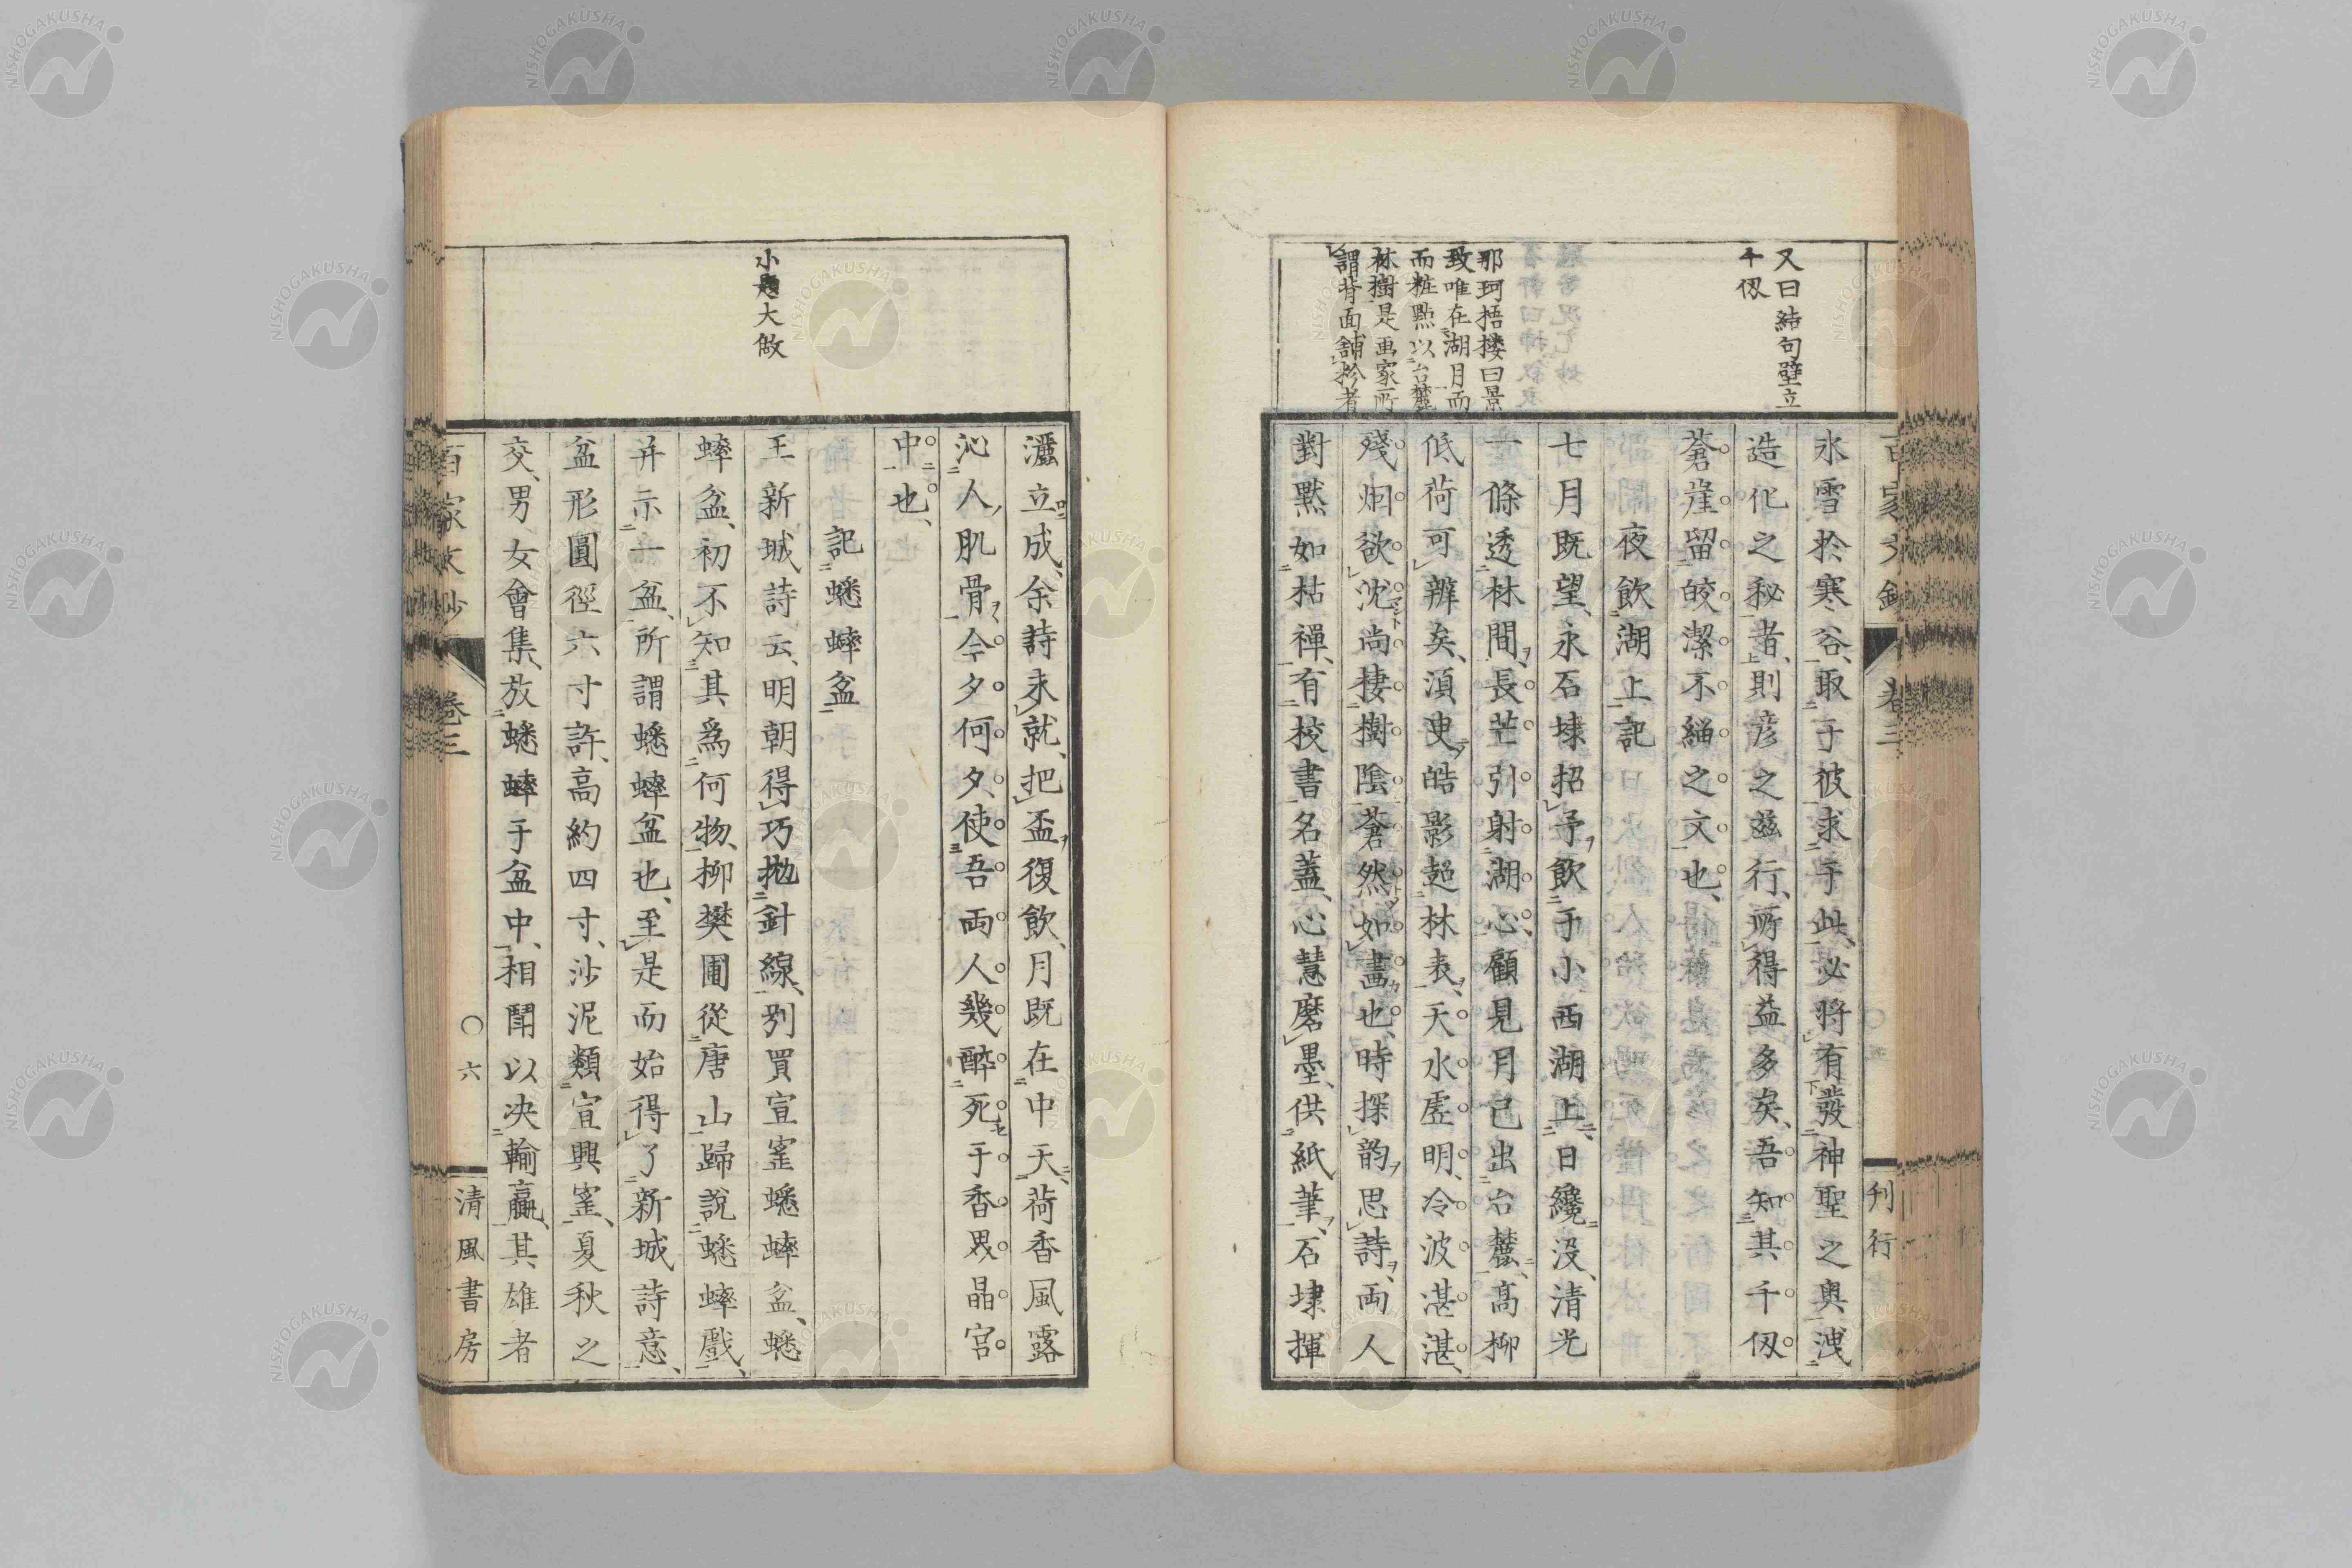 又曰結句壁立
千仭
那珂梧樓曰景
致唯在湖月而
而粧點以台麓
林樹是画家所
謂背面舖扵者
氷雪於寒谷、取于彼求于此、必將有發神聖之奥洩
造化之秘者、則彦之兹行、所得益多矣、吾知其千仭
蒼崖留皎潔不緇之文也、
夜飮湖上記
七月既望、永石埭招予飮于小西湖上、日纔沒、清光
一條透林間、長芒引射湖心、顧見月已出台麓、高柳
低荷可辨矣、湏臾皓影超林表、天水虗明、冷波湛湛、
殘烟欲沈尚棲樹陰蒼然如畫也、時探韵思詩、両人
對黙如枯禪、有校書名蓋、心慧磨墨、供紙筆、石埭揮
百家文鈔
卷三
刊行
小題大做
灑立成、余詩未就、把盃復飮、月既在中天、荷香風露
沁人肌骨今夕何夕、使吾両人幾醉死于香界晶宫
中也、
記蟋蟀盆
王新城詩云、明朝得巧拋針線、別買宣窰蟋蟀盆、蟋
蟀盆、初不知其爲何物、柳樊圃從唐山歸說蟋蟀戲、
并示一盆、所謂蟋蟀盆也、至是而始得了新城詩意、
盆形圓徑六寸許、高約四寸、沙泥類宣興窰、夏秋之
交、男女會集、放蟋蟀于盆中、相鬪以决輸贏、其雄者
百家文鈔
卷三
〇六
清風書房
NISHOGAKUSHA